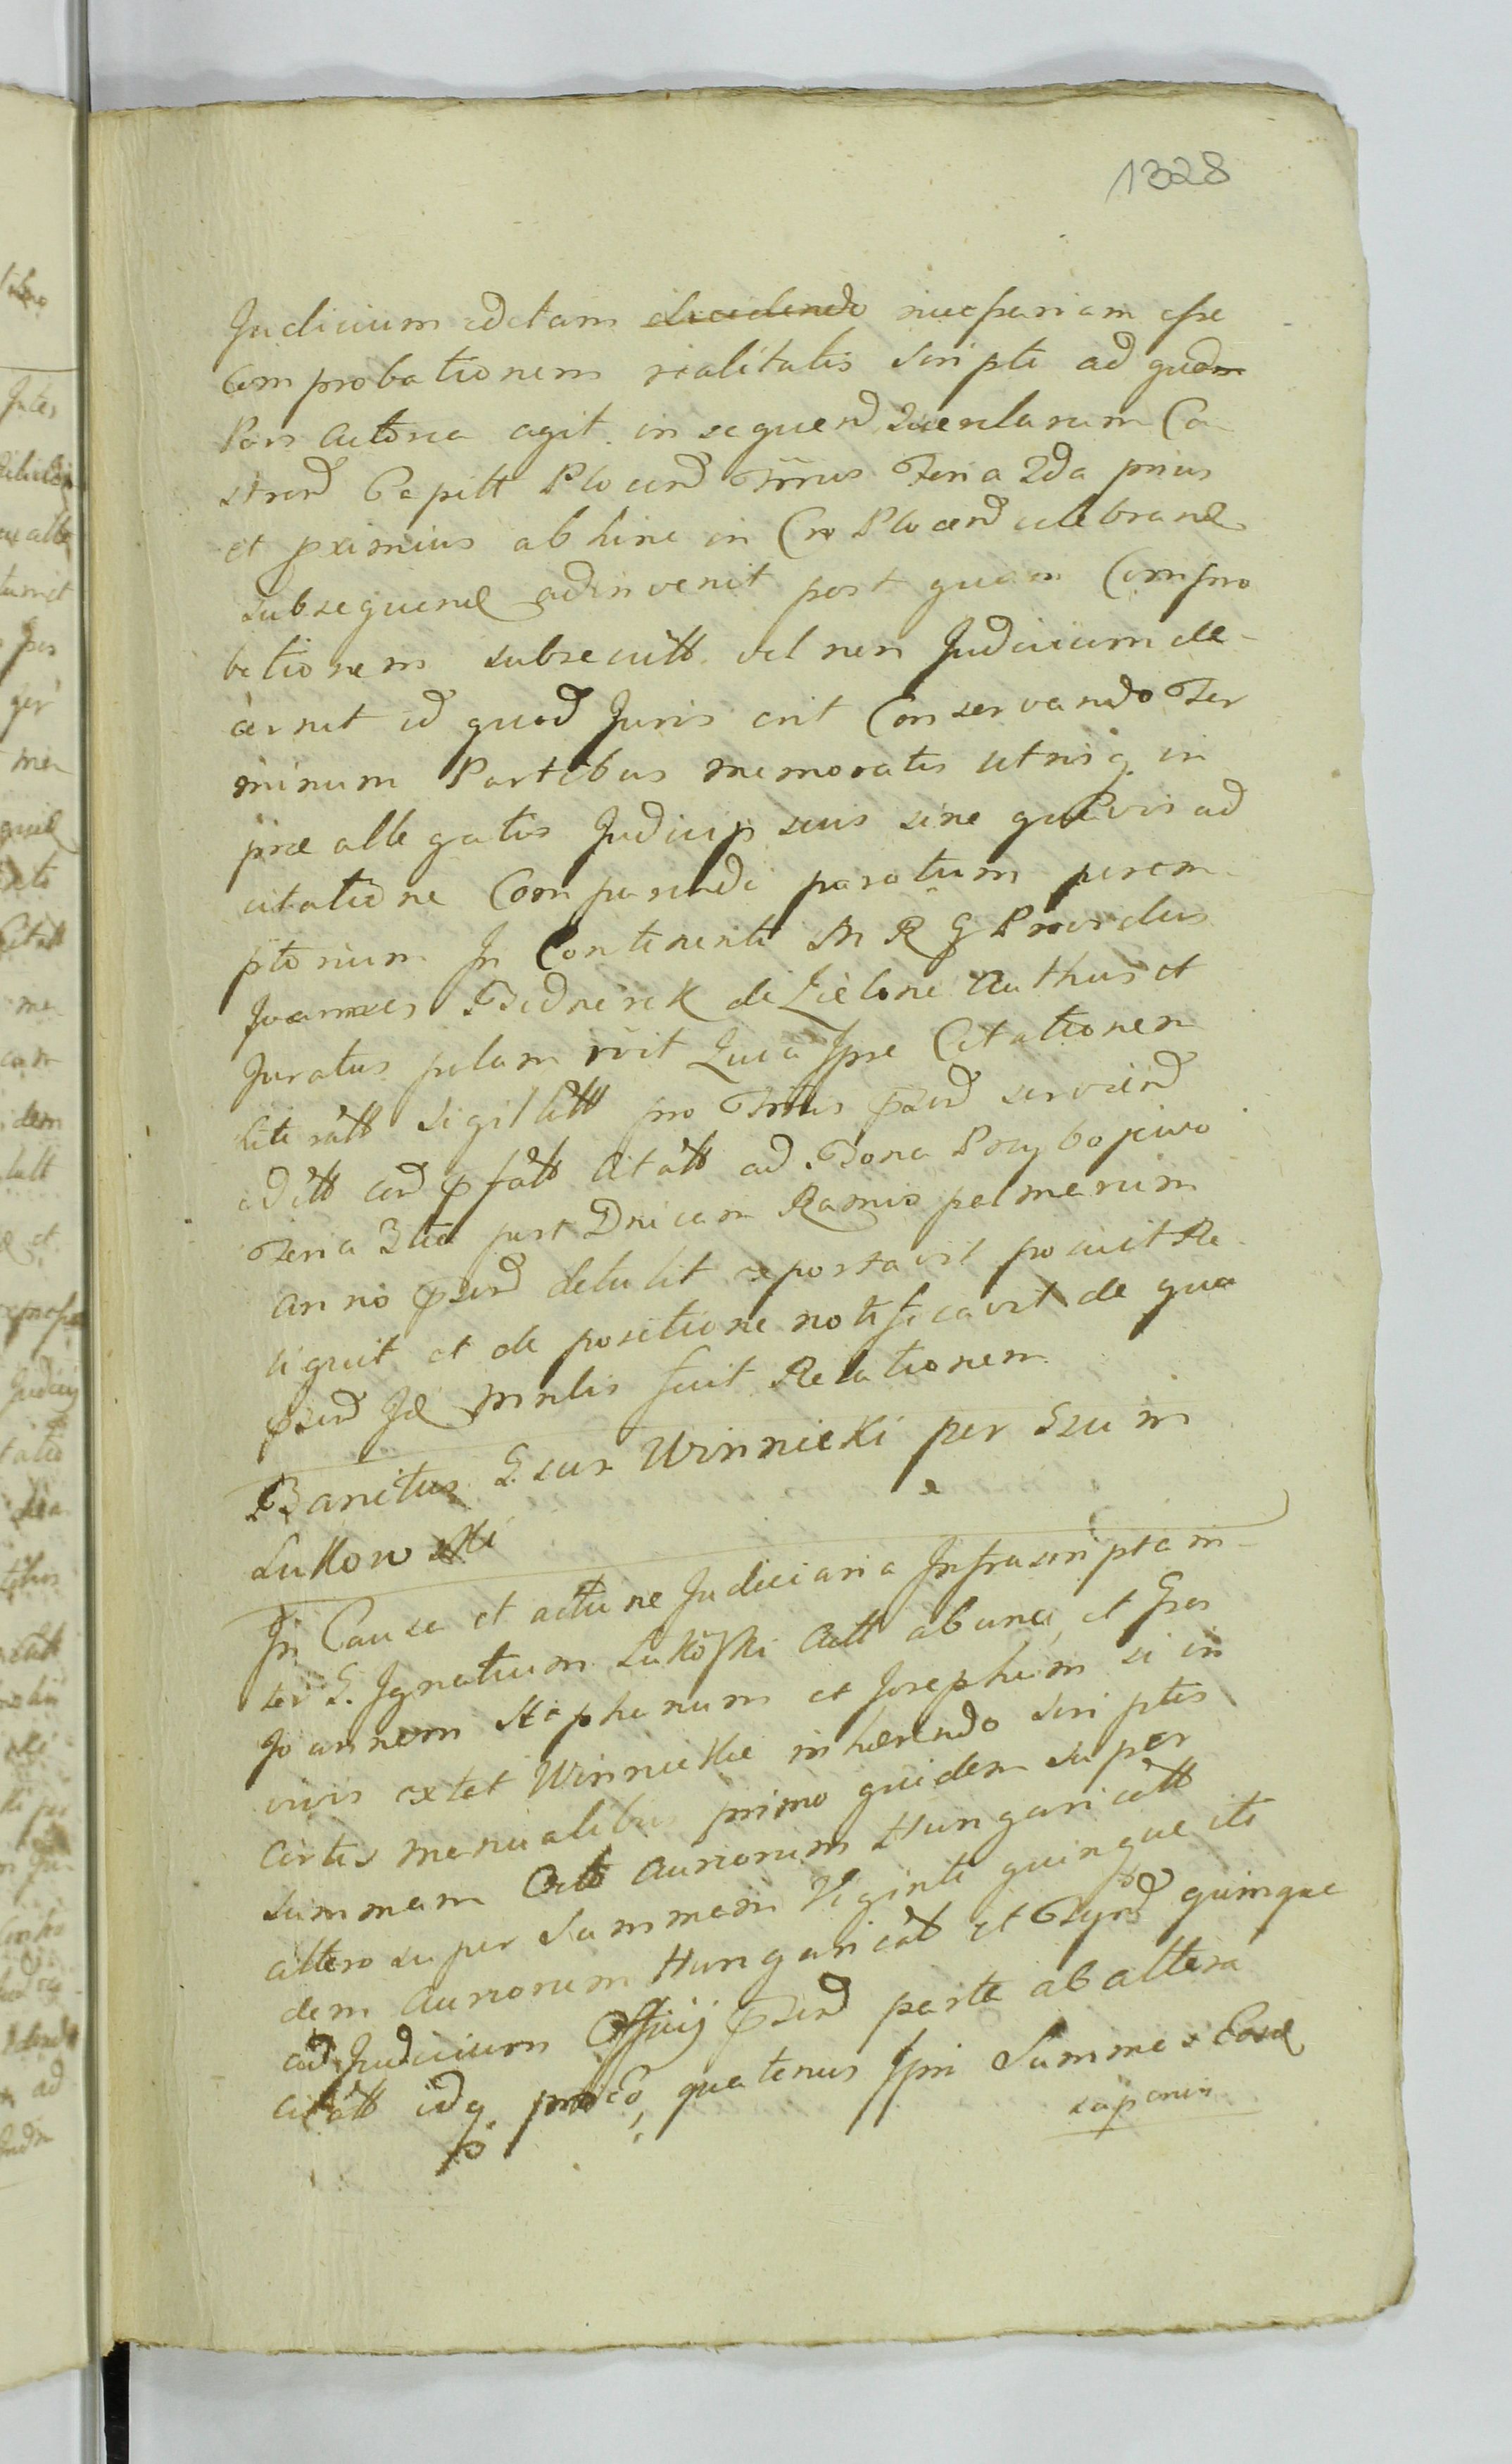 1328
Judicium edctam decidendo necessariam esse
Comprobationem realitatis scripti ad quem
Pars Actorea agit. in sequend Querelarum Ca
strend Capitt Plocend Trnis Feria 2da prius
et pximius abhinc in Cro Plocend celebrand
subsequend adinvenit post quam Compro
bationem subsecutt vel non Judicium de-
cernet id quod Juris erit Conservando Ter
minum Partibus memoratis utrisq in
præallegatis Judicijs suis sine quavis ad
citatione Comparendi paratum perem-
ptorium In Continenti M R G Providus
Joannes Bednarek de Zielone Authus et
Juratus palam rvit Quia Ipse Citationem
literatt Sigillatt pro Trnis psend serviend
editt end pfatt Citatt ad Bona Przybojewo
Feria 3tia post Dnicam Ramis palmarum
anno psend detulit reportavit posuit Re-
liquit et de positione notificavit de qua
psend Jd Mnlis fuit Relationem
Banitus G. sur Winnicki per Gsum
Lukowski
In Causa et actione Judiciaria Infrascripta in-
ter G. Ignatium Lukoski Actt ab una, et Gsos
Joannem Stephanum et Josephum si in
vivis extet Winnickie inhærendo scriptis
Certis manualibus primo quidem super
summam Octo Aureorum Hungaricatt
altero super summam Viginti quinque iti
dem Aureorum Hungaricatt et Tynf quinque
ad Judicium Officij psend parte ab altera
citatt idq pro eo, quatenus Ipsi Summas Easd
superius